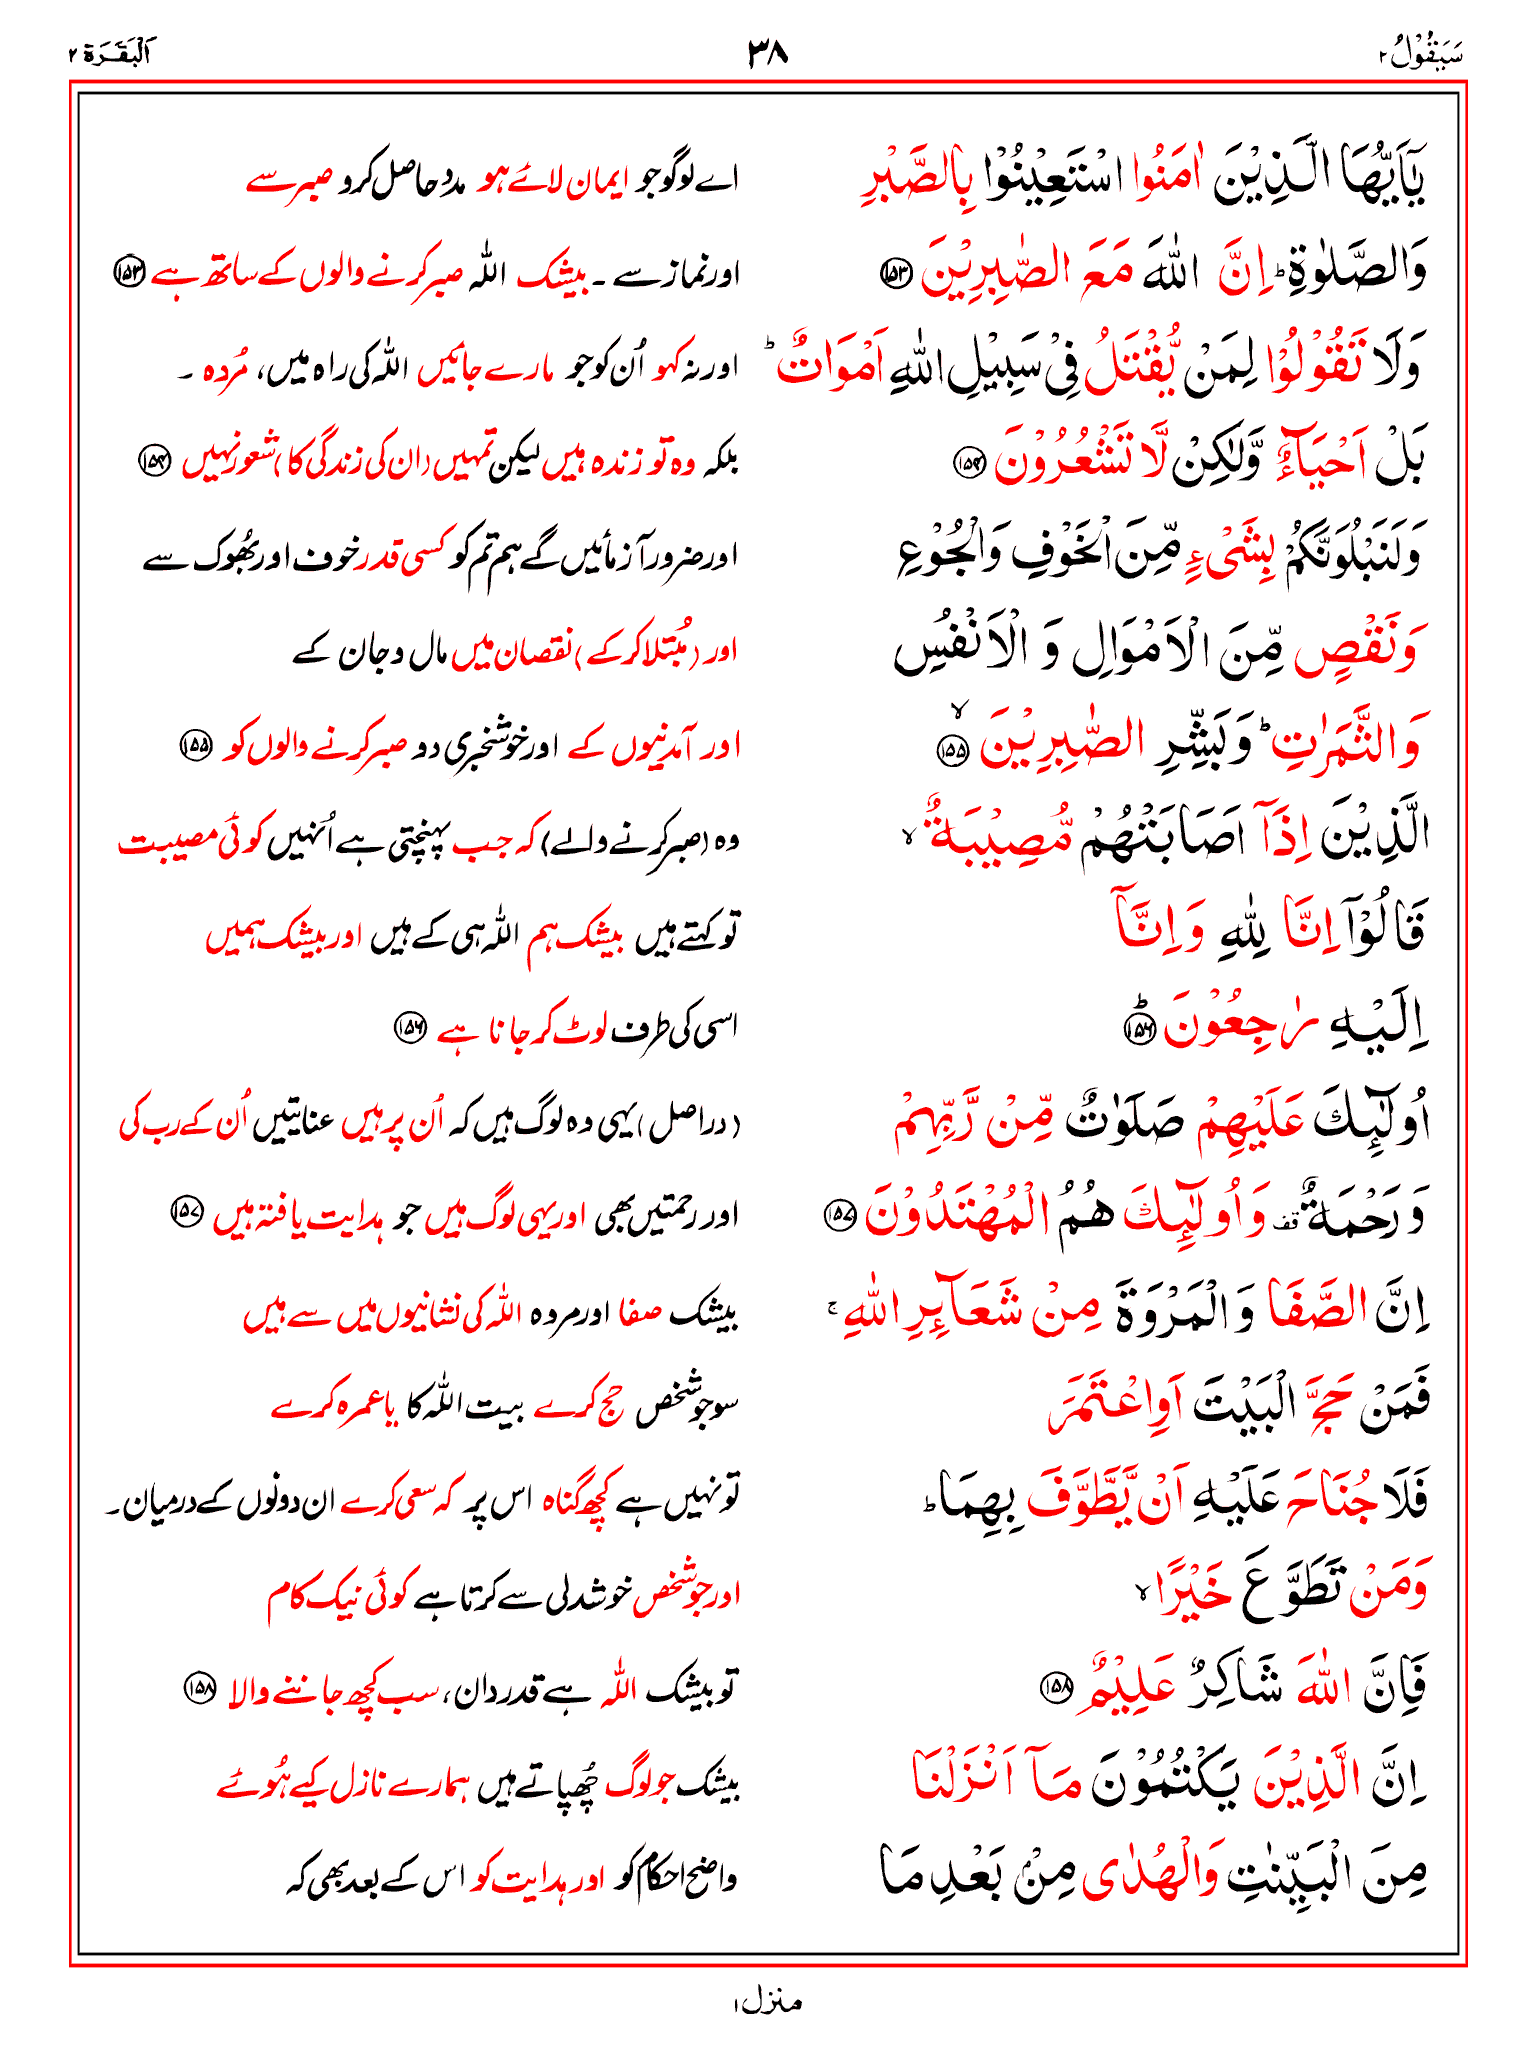 سَيَقُوْلُ ٢ ٣٨ اَلْبَقَرَة ٢
يٰٓاَيُّهَا الَّذِيْنَ اٰمَنُوا اسْتَعِيْنُوْا بِالصَّبْرِ اے لوگو جو ایمان لائے ہو مدد حاصل کرو صبر سے
وَالصَّلٰوةِ ؕ اِنَّ اللّٰهَ مَعَ الصّٰبِرِيْنَ ۝۱۵۳ اور نماز سے ۔ بیشک اللہ صبر کرنے والوں کے ساتھ ہے ۝۱۵۳
وَلَا تَقُوْلُوْا لِمَنْ يُّقْتَلُ فِيْ سَبِيْلِ اللّٰهِ اَمْوَاتٌ ؕ اور نہ کہو اُن کو جو مارے جائیں اللہ کی راہ میں، مُردہ ۔
بَلْ اَحْيَآءٌ وَّلٰكِنْ لَّا تَشْعُرُوْنَ ۝۱۵۴ بلکہ وہ تو زندہ ہیں لیکن تمہیں (ان کی زندگی کا) شعور نہیں ۝۱۵۴
وَلَنَبْلُوَنَّكُمْ بِشَيْءٍ مِّنَ الْخَوْفِ وَالْجُوْعِ اور ضرور آزمائیں گے ہم تم کو کسی قدر خوف اور بھُوک سے
وَنَقْصٍ مِّنَ الْاَمْوَالِ وَ الْاَنْفُسِ اور (مُبتلا کر کے) نقصان میں مال و جان کے
وَالثَّمَرٰتِ ؕ وَبَشِّرِ الصّٰبِرِيْنَ ۙ۝۱۵۵ اور آمدنیوں کے اور خوشخبری دو صبر کرنے والوں کو ۝۱۵۵
الَّذِيْنَ اِذَآ اَصَابَتْهُمْ مُّصِيْبَةٌ ۙ وہ (صبر کرنے والے) کہ جب پہنچتی ہے اُنہیں کوئی مصیبت
قَالُوْٓا اِنَّا لِلّٰهِ وَاِنَّآ تو کہتے ہیں بیشک ہم اللہ ہی کے ہیں اور بیشک ہمیں
اِلَيْهِ رٰجِعُوْنَ ؕ۝۱۵۶ اسی کی طرف لوٹ کر جانا ہے ۝۱۵۶
اُولٰٓئِكَ عَلَيْهِمْ صَلَوٰتٌ مِّنْ رَّبِّهِمْ (دراصل) یہی وہ لوگ ہیں کہ اُن پر ہیں عنایتیں اُن کے رب کی
وَرَحْمَةٌ قف وَاُولٰٓئِكَ هُمُ الْمُهْتَدُوْنَ ۝۱۵۷ اور رحمتیں بھی اور یہی لوگ ہیں جو ہدایت یافتہ ہیں ۝۱۵۷
اِنَّ الصَّفَا وَالْمَرْوَةَ مِنْ شَعَآئِرِ اللّٰهِ ۚ بیشک صفا اور مروہ اللہ کی نشانیوں میں سے ہیں
فَمَنْ حَجَّ الْبَيْتَ اَوِاعْتَمَرَ سو جو شخص حج کرے بیت اللہ کا یا عمرہ کرے
فَلَا جُنَاحَ عَلَيْهِ اَنْ يَّطَّوَّفَ بِهِمَا ؕ تو نہیں ہے کچھ گناہ اس پر کہ سعی کرے ان دونوں کے درمیان۔
وَمَنْ تَطَوَّعَ خَيْرًا ۙ اور جو شخص خوشدلی سے کرتا ہے کوئی نیک کام
فَاِنَّ اللّٰهَ شَاكِرٌ عَلِيْمٌ ۝۱۵۸ تو بیشک اللہ ہے قدر دان، سب کچھ جاننے والا ۝۱۵۸
اِنَّ الَّذِيْنَ يَكْتُمُوْنَ مَآ اَنْزَلْنَا بیشک جو لوگ چُھپاتے ہیں ہمارے نازل کیے ہُوئے
مِنَ الْبَيِّنٰتِ وَالْهُدٰى مِنْۢ بَعْدِ مَا واضح احکام کو اور ہدایت کو اس کے بعد بھی کہ
منزل ۱